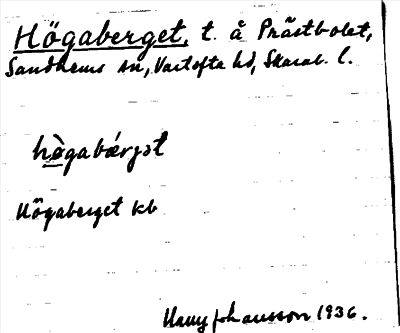 Högaberget, t. å Prästbolet,
Sandhems sn, Vartofta hd, Skarab. l.
hògabǽrjət
Högaberget kb
Harry Johansson 1936.